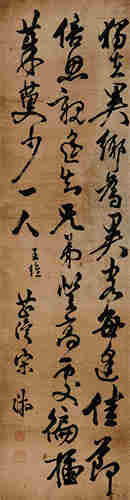 獨在異鄉為異客每逢佳節
倍思親遙知兄弟登高處徧插
茱萸少一人
王維
芷灣宋湘